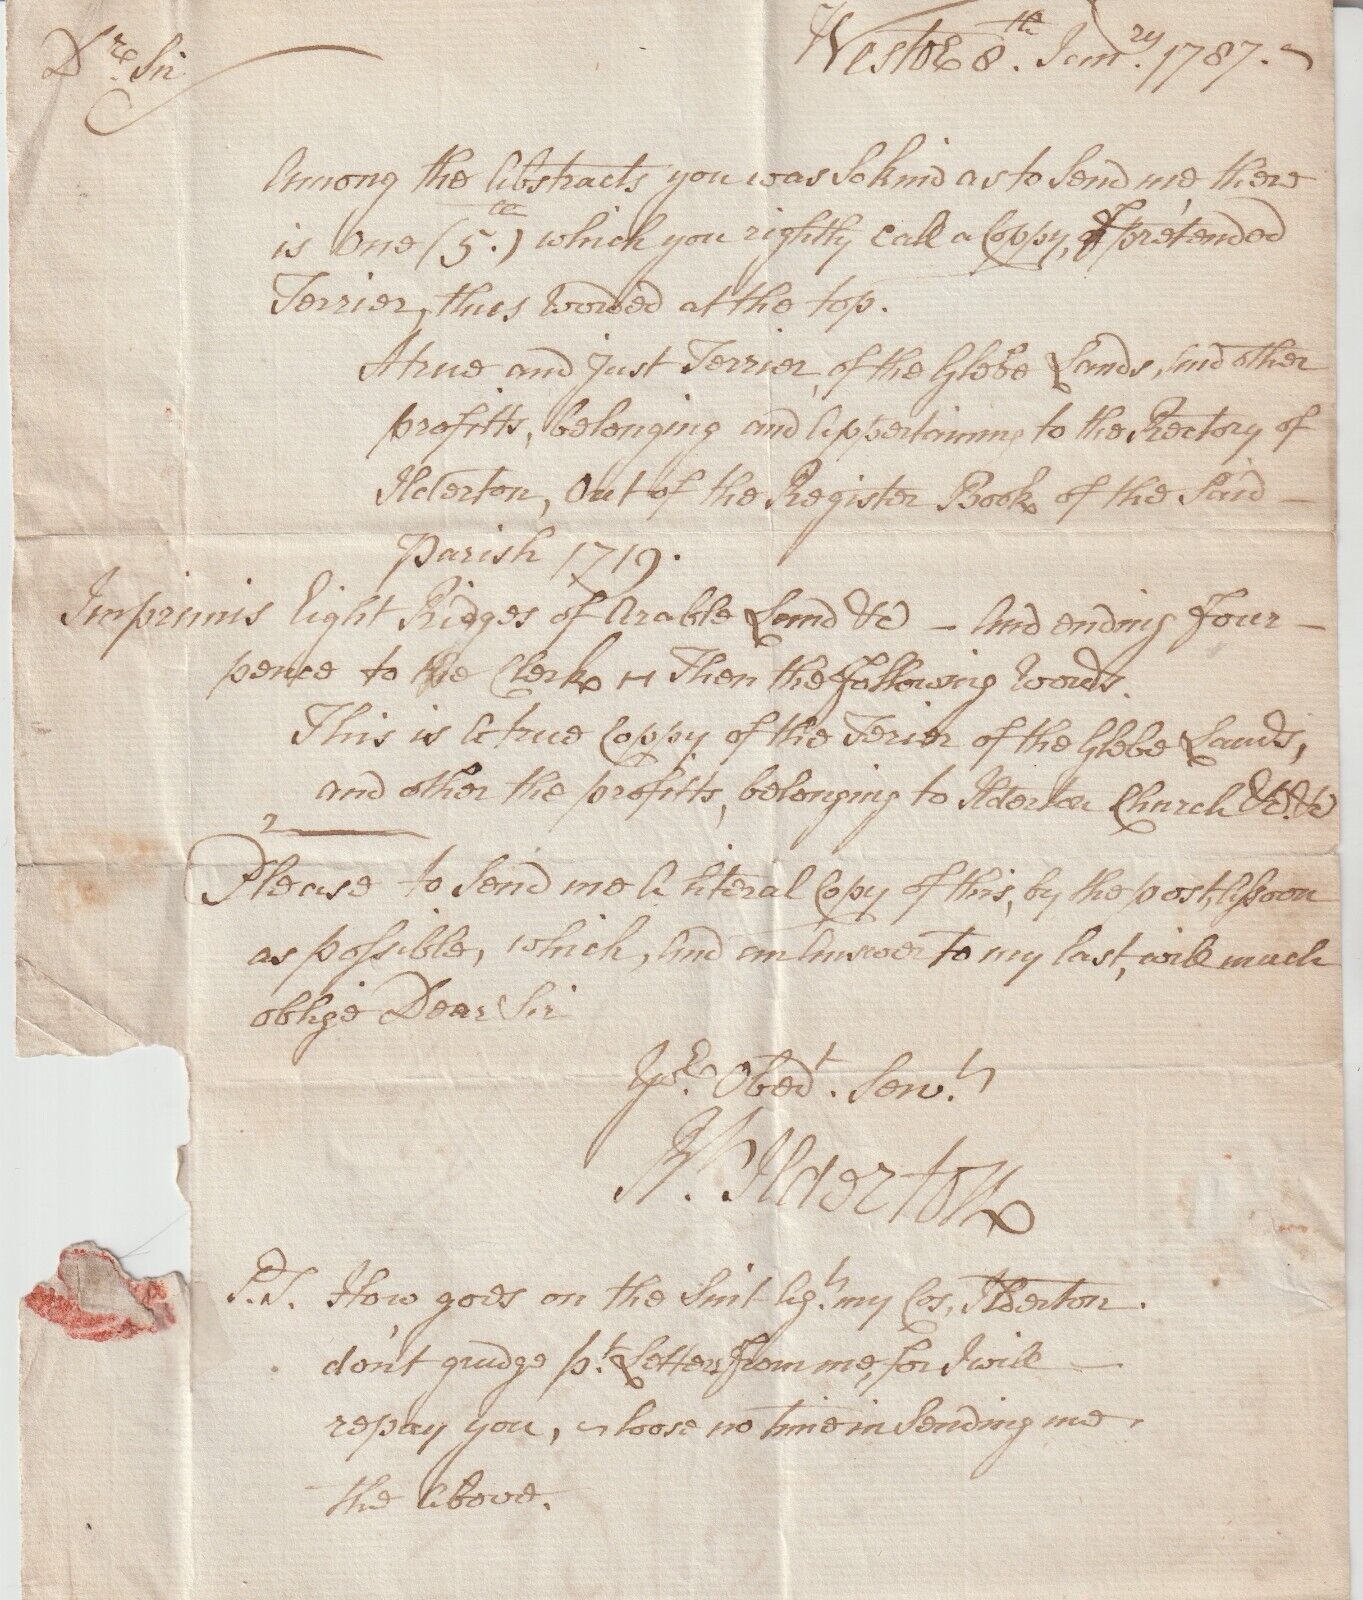 Dre. Sir
Westoe 8th. Janry. 1787.
Among the Abstracts you was so kind as to Send me there
is One (5th.) which you rightly call a Copy, of pretended
Terrier, thus worded at the top.
A true and just Terrier, of the Glebe Lands, And other
profitts, belonging and Appertaining to the Rectory of
Ilderton, Out of the Register Book of the Said –
Parish 1719.
Imprimis Eight Ridges of Arable Land &c – And ending Four –
pence to the Clerk Then the following Words.
This is A true Coppy of the Terier of the Glebe Lands,
and other the profitts, belonging to Ilderton Church &c. &c
Please to Send me A literal Copy of this, by the post, As soon
as possible, which, And an Answer to my last, will much
oblige Dear Sir
Yr. Obedt. Servt.
Ilderton
P.S. How goes on the Suit Agt. my Cos. Ilderton.
don't grudge pt. Letters From me, for I will –
repay you, loose no time in Sending me
the Above.